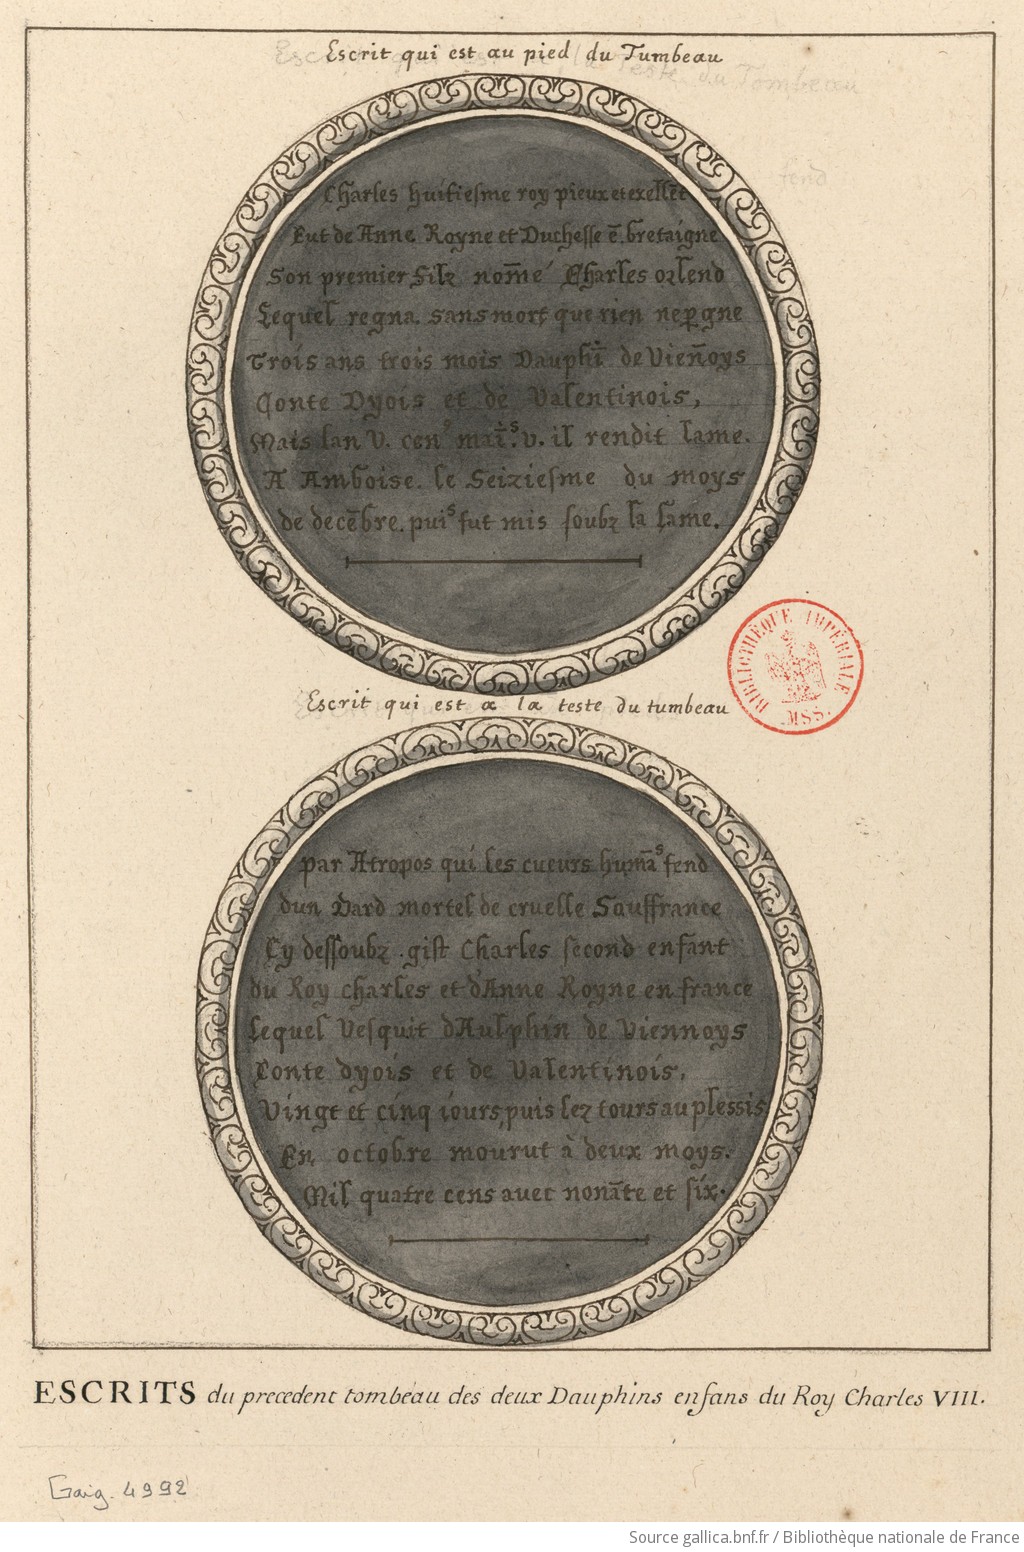 Escrit qui est au pied du Tumbeau
Charles huitiesme roy pieux et exellēt
Eut de Anne Royne et Duchesse ē bretaigne
Son premier filz nom̄é Charles orlend
Lequel regna sans mort que rien nep̱gne
Trois ans trois mois Dauphī de Vien̄oys
Conte Dyois et de Valentinois,
Mais lan V. cens mains v. il rendit lame.
A Amboise. le Seiziesme du moys
de decēbre. puis fut mis soubz la lame.
Escrit qui est a la teste du tumbeau
BIBLIOTHÈQUE IMPÉRIALE
MSS.
par Atropos qui les cueurs humās fend
dun Dard mortel de cruelle Souffrance
Cy dessoubz . gist Charles second enfant
du Roy charles et d'Anne Royne en france
Lequel Vesquit dAulphin de Viennoys
Conte dyois et de Valentinois,
Vingt et cinq iours, puis lez tours au plessis
En octobre mourut à deux moys.
Mil quatre cens avec nonāte et six.
ESCRITS du precedent tombeau des deux Dauphins enfans du Roy Charles VIII.
Gaig. 4992
Source gallica.bnf.fr / Bibliothèque nationale de France